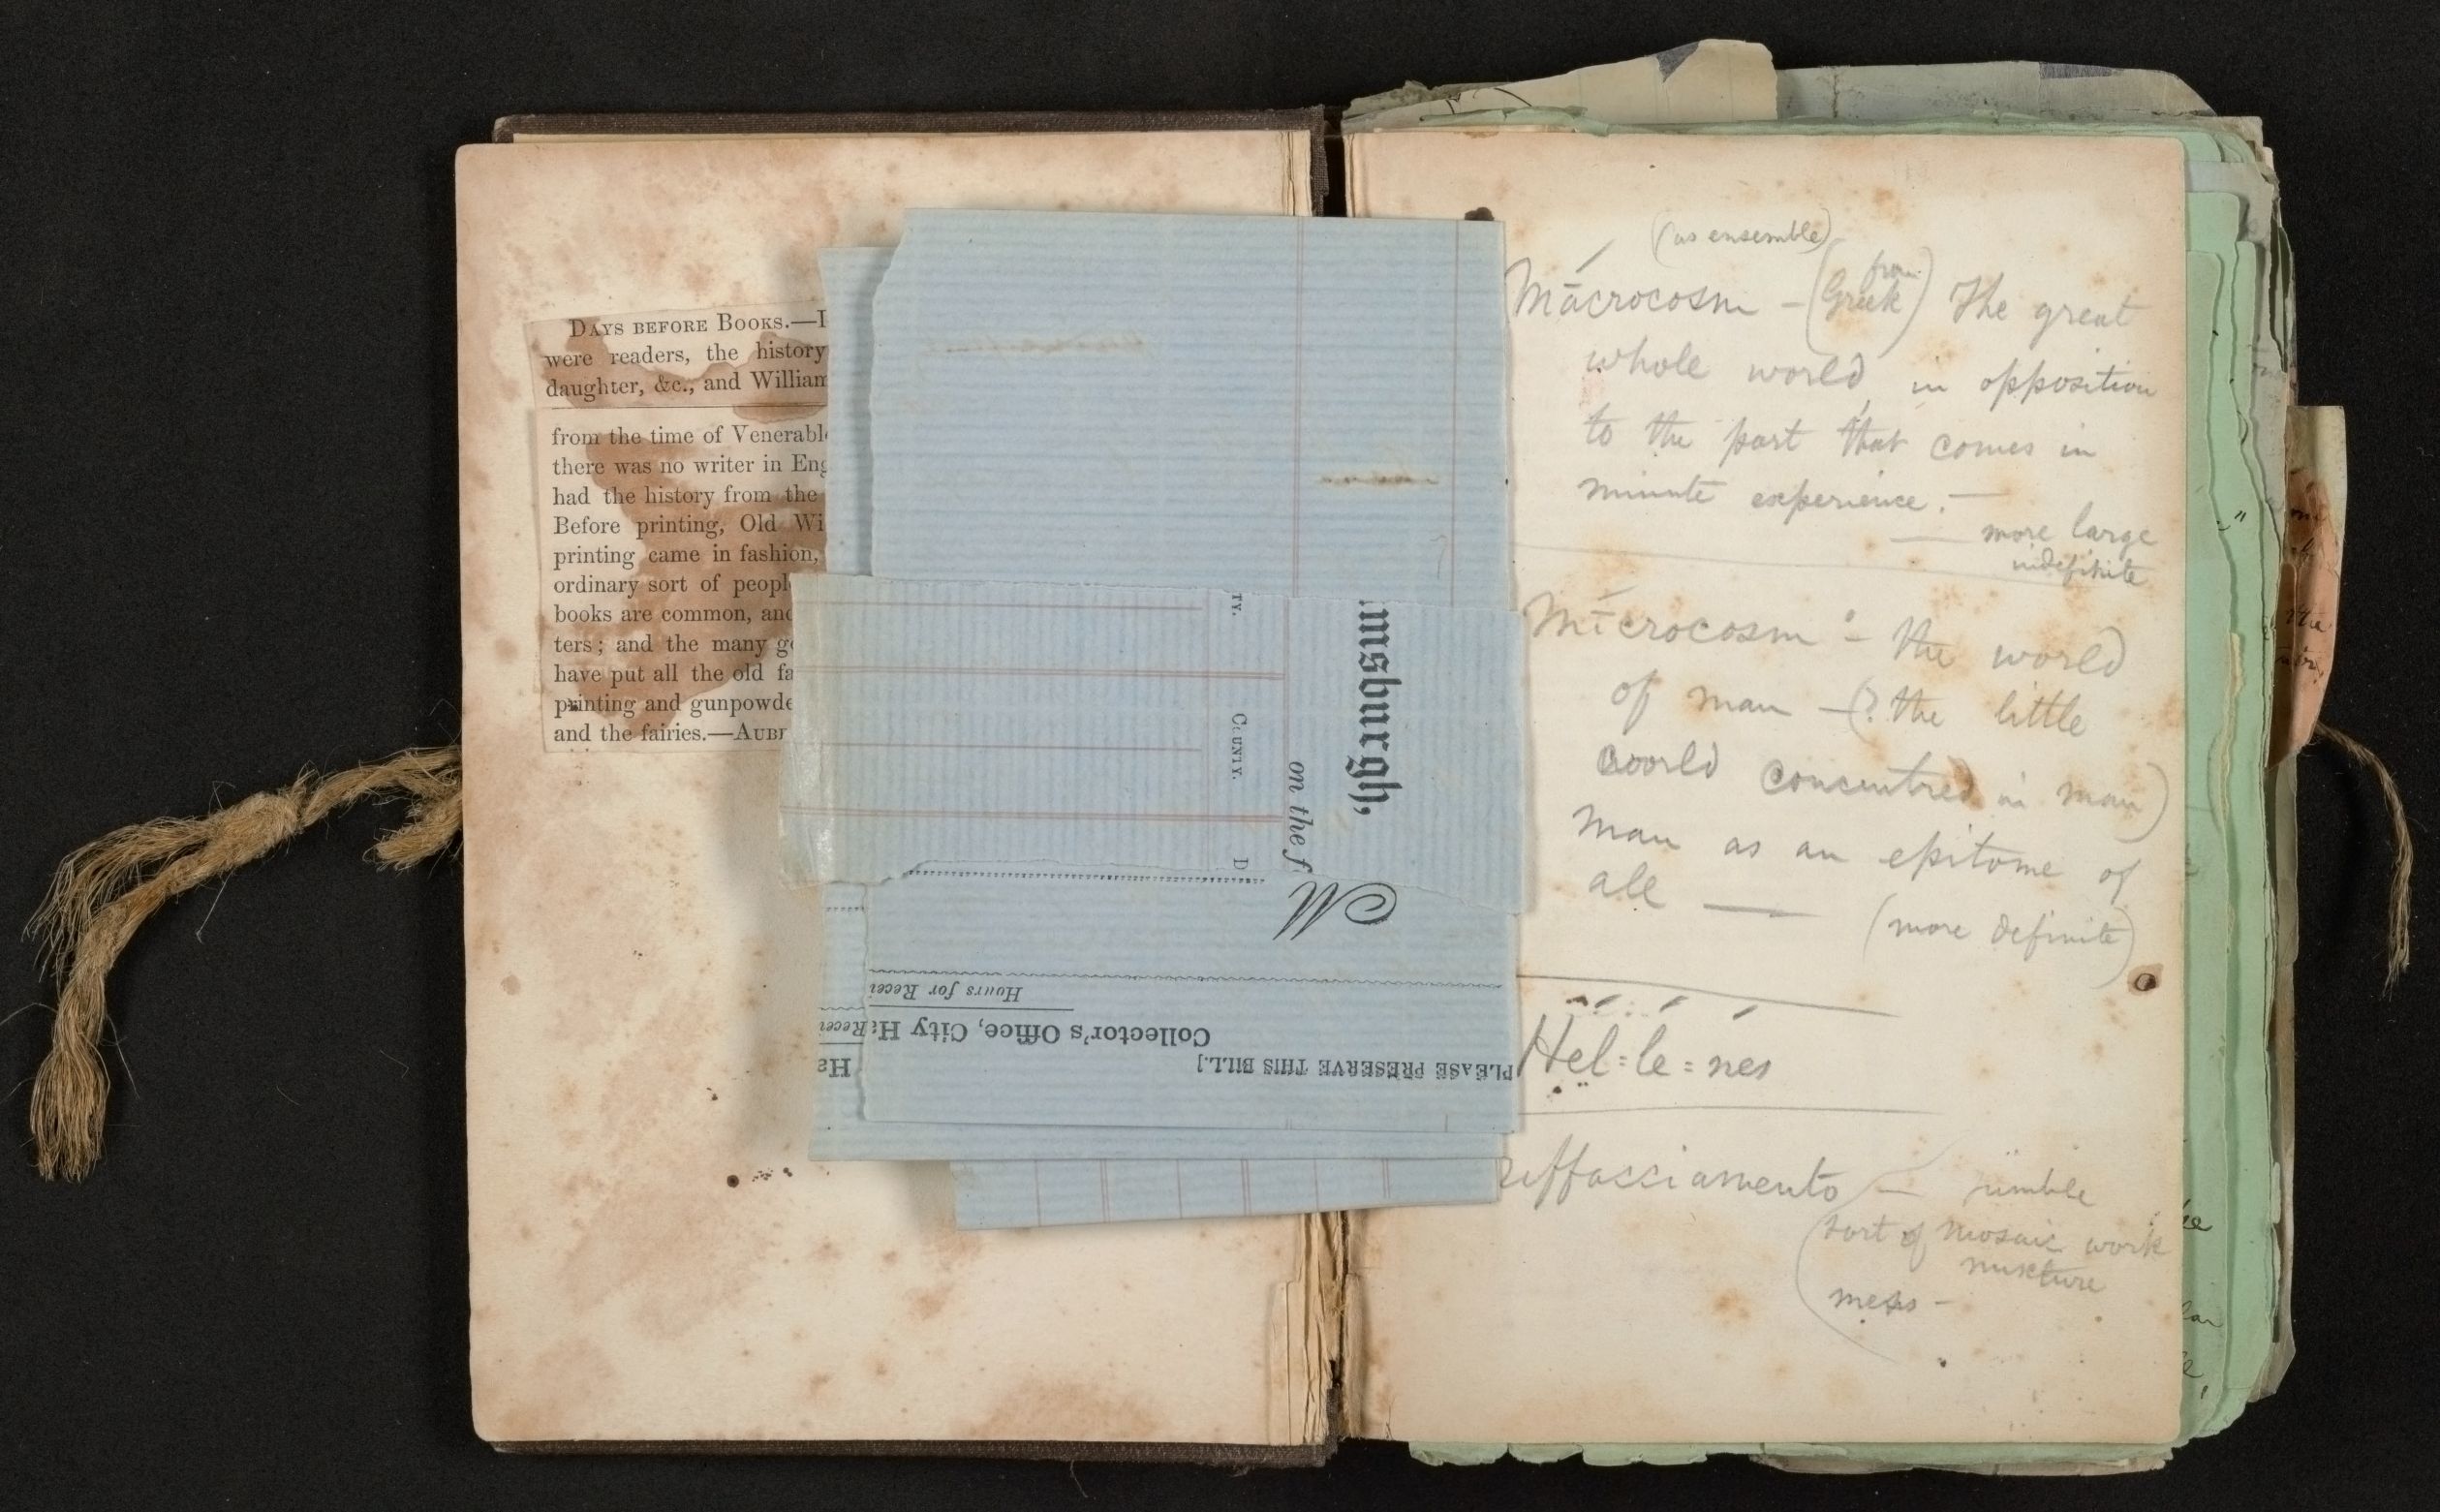 DAYS BEFORE BOOKS.—I
were readers, the history
daughter, &c., and William
from the time of Venerable
there was no writer in Eng
had the history from the
Before printing, Old Wi
printing came in fashion,
ordinary sort of peopl
books are common, and
ters; and the many g
have put all the old fa
printing and gunpowde
and the fairies.—AUBR
TY.
COUNTY.
D
on the f
msburgh,
M
Hours for Recei
Recei
Collector's Office, City Ha
Ha
PLEASE PRESERVE THIS BILL.]
(as ensemble)
Macrocosm – (from Greek) The great
whole world, in opposition
to the part that comes in
minute experience. —
— more large
indefinite
Microcosm – the world
of man – (? the little
world concentred in man)
Man as an epitome of
all — (more definite)
Hel=le=nes
riffacciamento – jumble
(sort of mosaic work
mixture
mess –